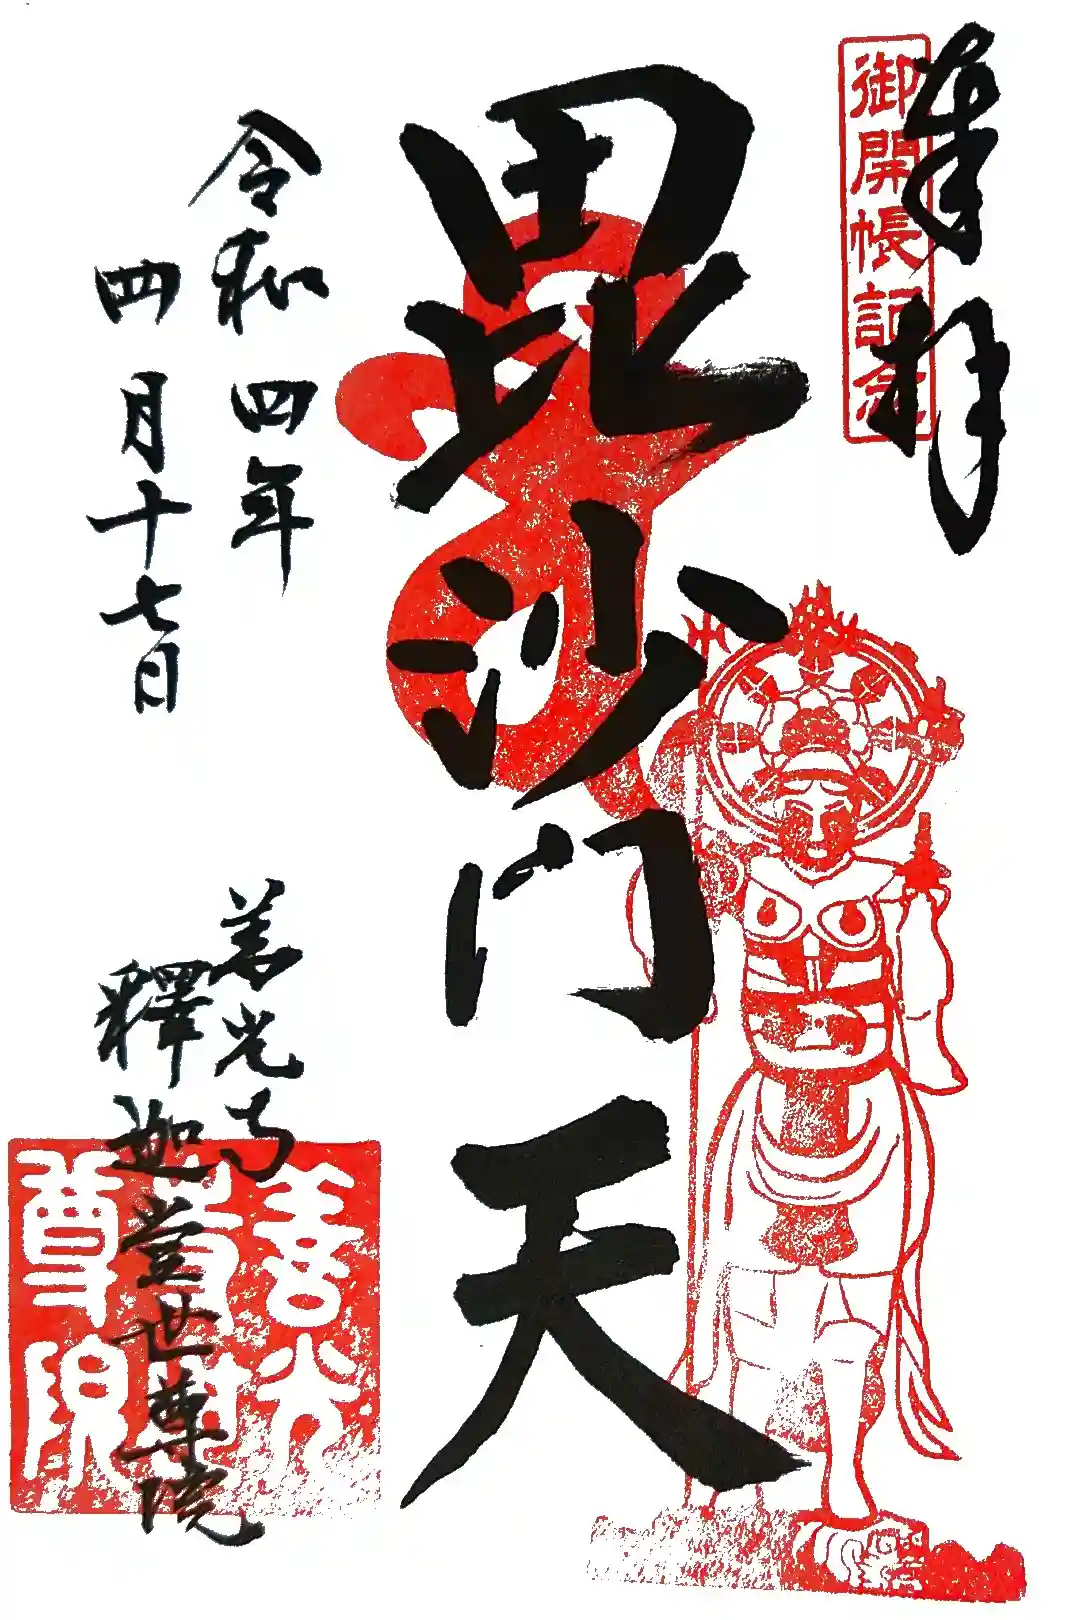 奉拝
御開帳記念
毘沙門天
令和四年
四月十七日
善光寺
釋迦堂世尊院
善光
寺
尊院